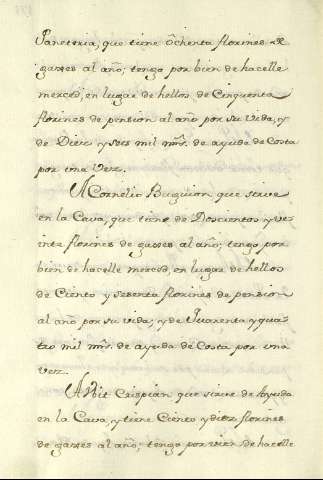 Panetería, que tiene ôchenta florines de
gasses al año; tengo por bien de hacelle
merced, en lugar de hellos de Cinquenta
florines de pension al año por su vida, y
de Diez y seis mil mrs. de ayuda de Costa
por una Vez.
A Cornelio Buguion que sirve
en la Cava, que tiene de Doscientos y ve
inte florines de gasses al año; tengo por
bien de hacelle merced, en lugar de hellos
de Ciento y sesenta florines de pension
al año por su vida; y de Quarenta y qua
tro mil mrs. de ayuda de Costa por una
vez.
A Nit Crispian que sirve de Ayuda
en la Cava, y tiene Ciento y diez florines
de gasses al año; tengo por vien de hacelle